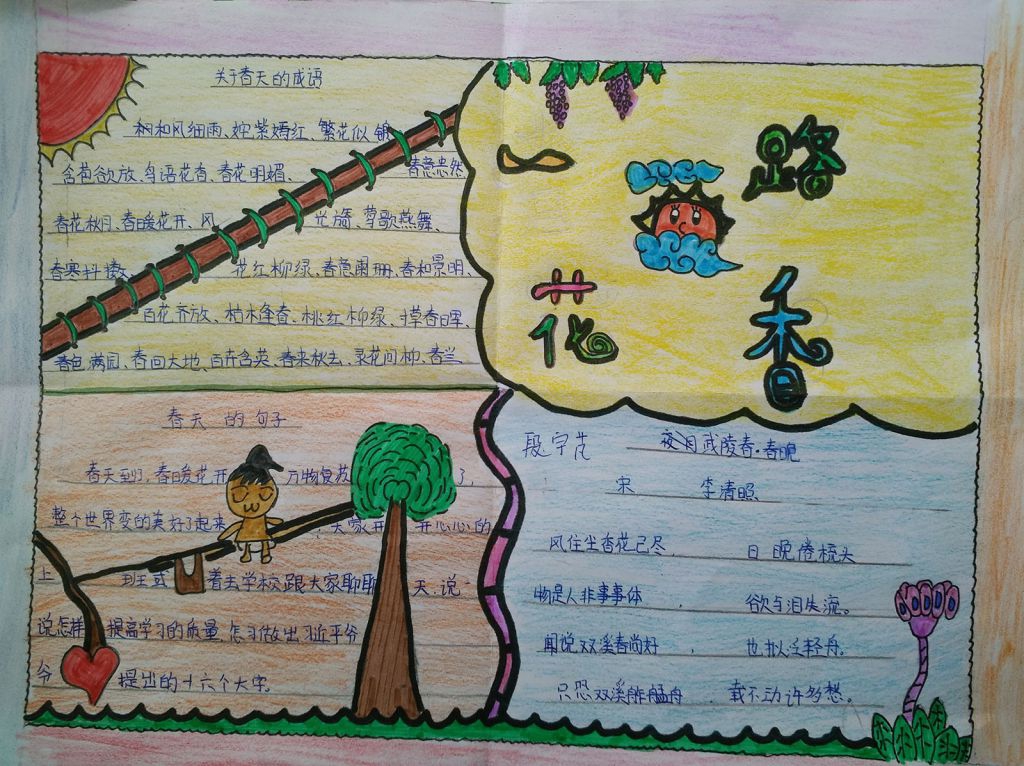 关于春天的成语
和风细雨、姹紫嫣红、繁花似锦
含苞欲放、鸟语花香、春花明媚、 春意盎然
春花秋月、春暖花开、风 光旖、莺歌燕舞、
春寒抖擞、 花红柳绿、春意阑珊、春和景明、
百花齐放、枯木逢春、桃红柳绿、寸草春晖、
春色满园、春回大地、百卉含英、春来秋去、寻花问柳、春兰
一路
花香
春天的句子
春天到了，春暖花开 万物复苏 了，
整个世界变的美好了起来 ，大家开 开心心的
上 班 着去学校跟大家聊聊 天，说
说怎样提高学习的质量，怎习做出习近平爷
爷 提出的十六个大字。
段宇范 夜月武陵春·春晚
宋 李清照
风住尘香花已尽， 日晚倦梳头
物是人非事事休 ， 欲与泪失流。
闻说双溪春尚好 ， 也拟泛轻舟。
只恐双溪舴艋舟 ， 载不动许多愁。